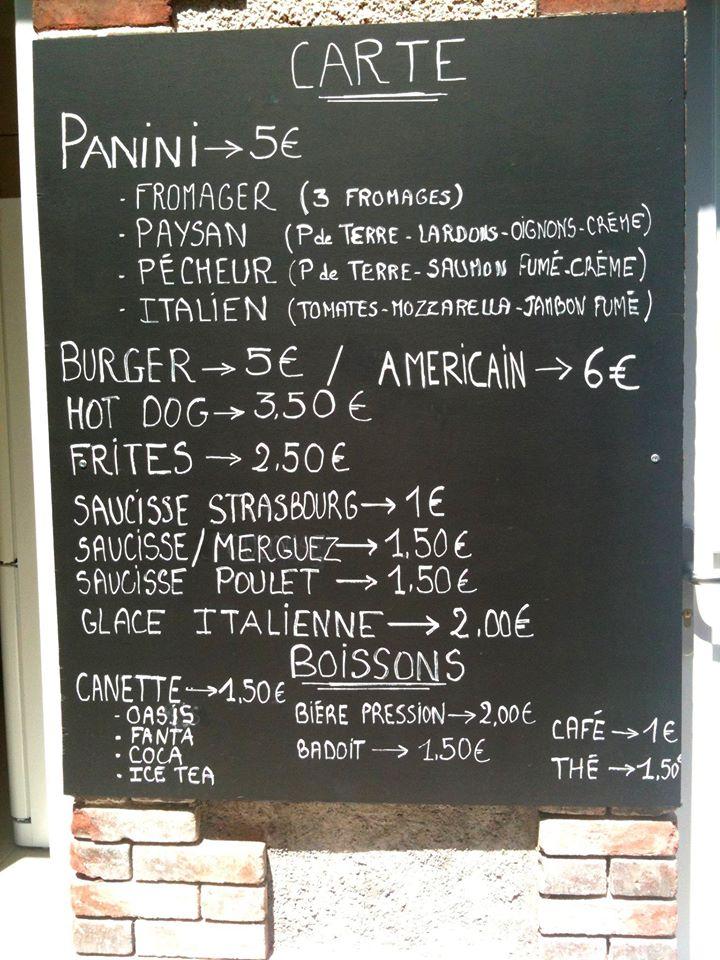 CARTE
PANINI → 5€
- FROMAGER (3 FROMAGES)
- PAYSAN (P de TERRE - LARDONS - OIGNONS - CRÉME)
- PÉCHEUR (P de TERRE - SAUMON FUMÉ - CRÉME)
- ITALIEN (TOMATES - MOZZARELLA - JAMBON FUMÉ)
BURGER → 5€ / AMERICAIN → 6€
HOT DOG → 3,50€
FRITES → 2,50€
SAUCISSE STRASBOURG → 1€
SAUCISSE/MERGUEZ → 1,50€
SAUCISSE POULET → 1,50€
GLACE ITALIENNE → 2,00€
BOISSONS
CANETTE → 1,50€
- OASIS
- FANTA
- COCA
- ICE TEA
BIÈRE PRESSION → 2,00€
BADOIT → 1,50€
CAFÉ → 1€
THÉ → 1,50€